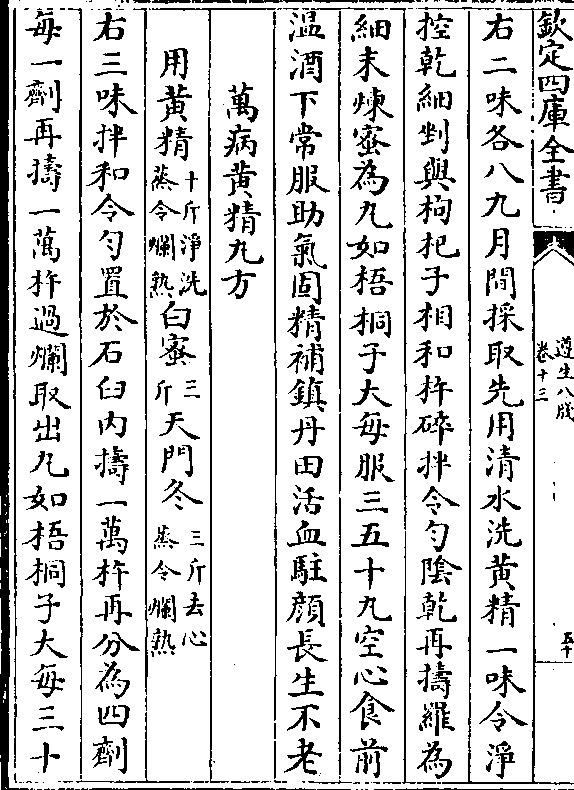 欽定四庫全書
遵生八牋
卷十三
五十
右二味各八九月間採取先用清水洗黄精一味令淨
控乾細剉與枸杞子相和杵碎拌令勻陰乾再擣羅為
細末煉蜜為丸如梧桐子大每服三五十九空心食前
温酒下常服助氣固精補鎮丹田活血駐顔長生不老
萬病黄精丸方
用黄精十斤淨洗蒸令爛熟白蜜三斤天門冬三斤去心蒸令爛熟
右三味拌和令勻置於石臼内擣一萬杵再分為四劑
每一劑再擣一萬杵過爛取出丸如梧桐子大每三十